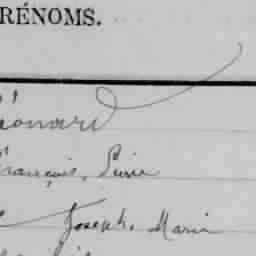 RÉNOMS.
éonard
François, Pierre
Joseph, Marie